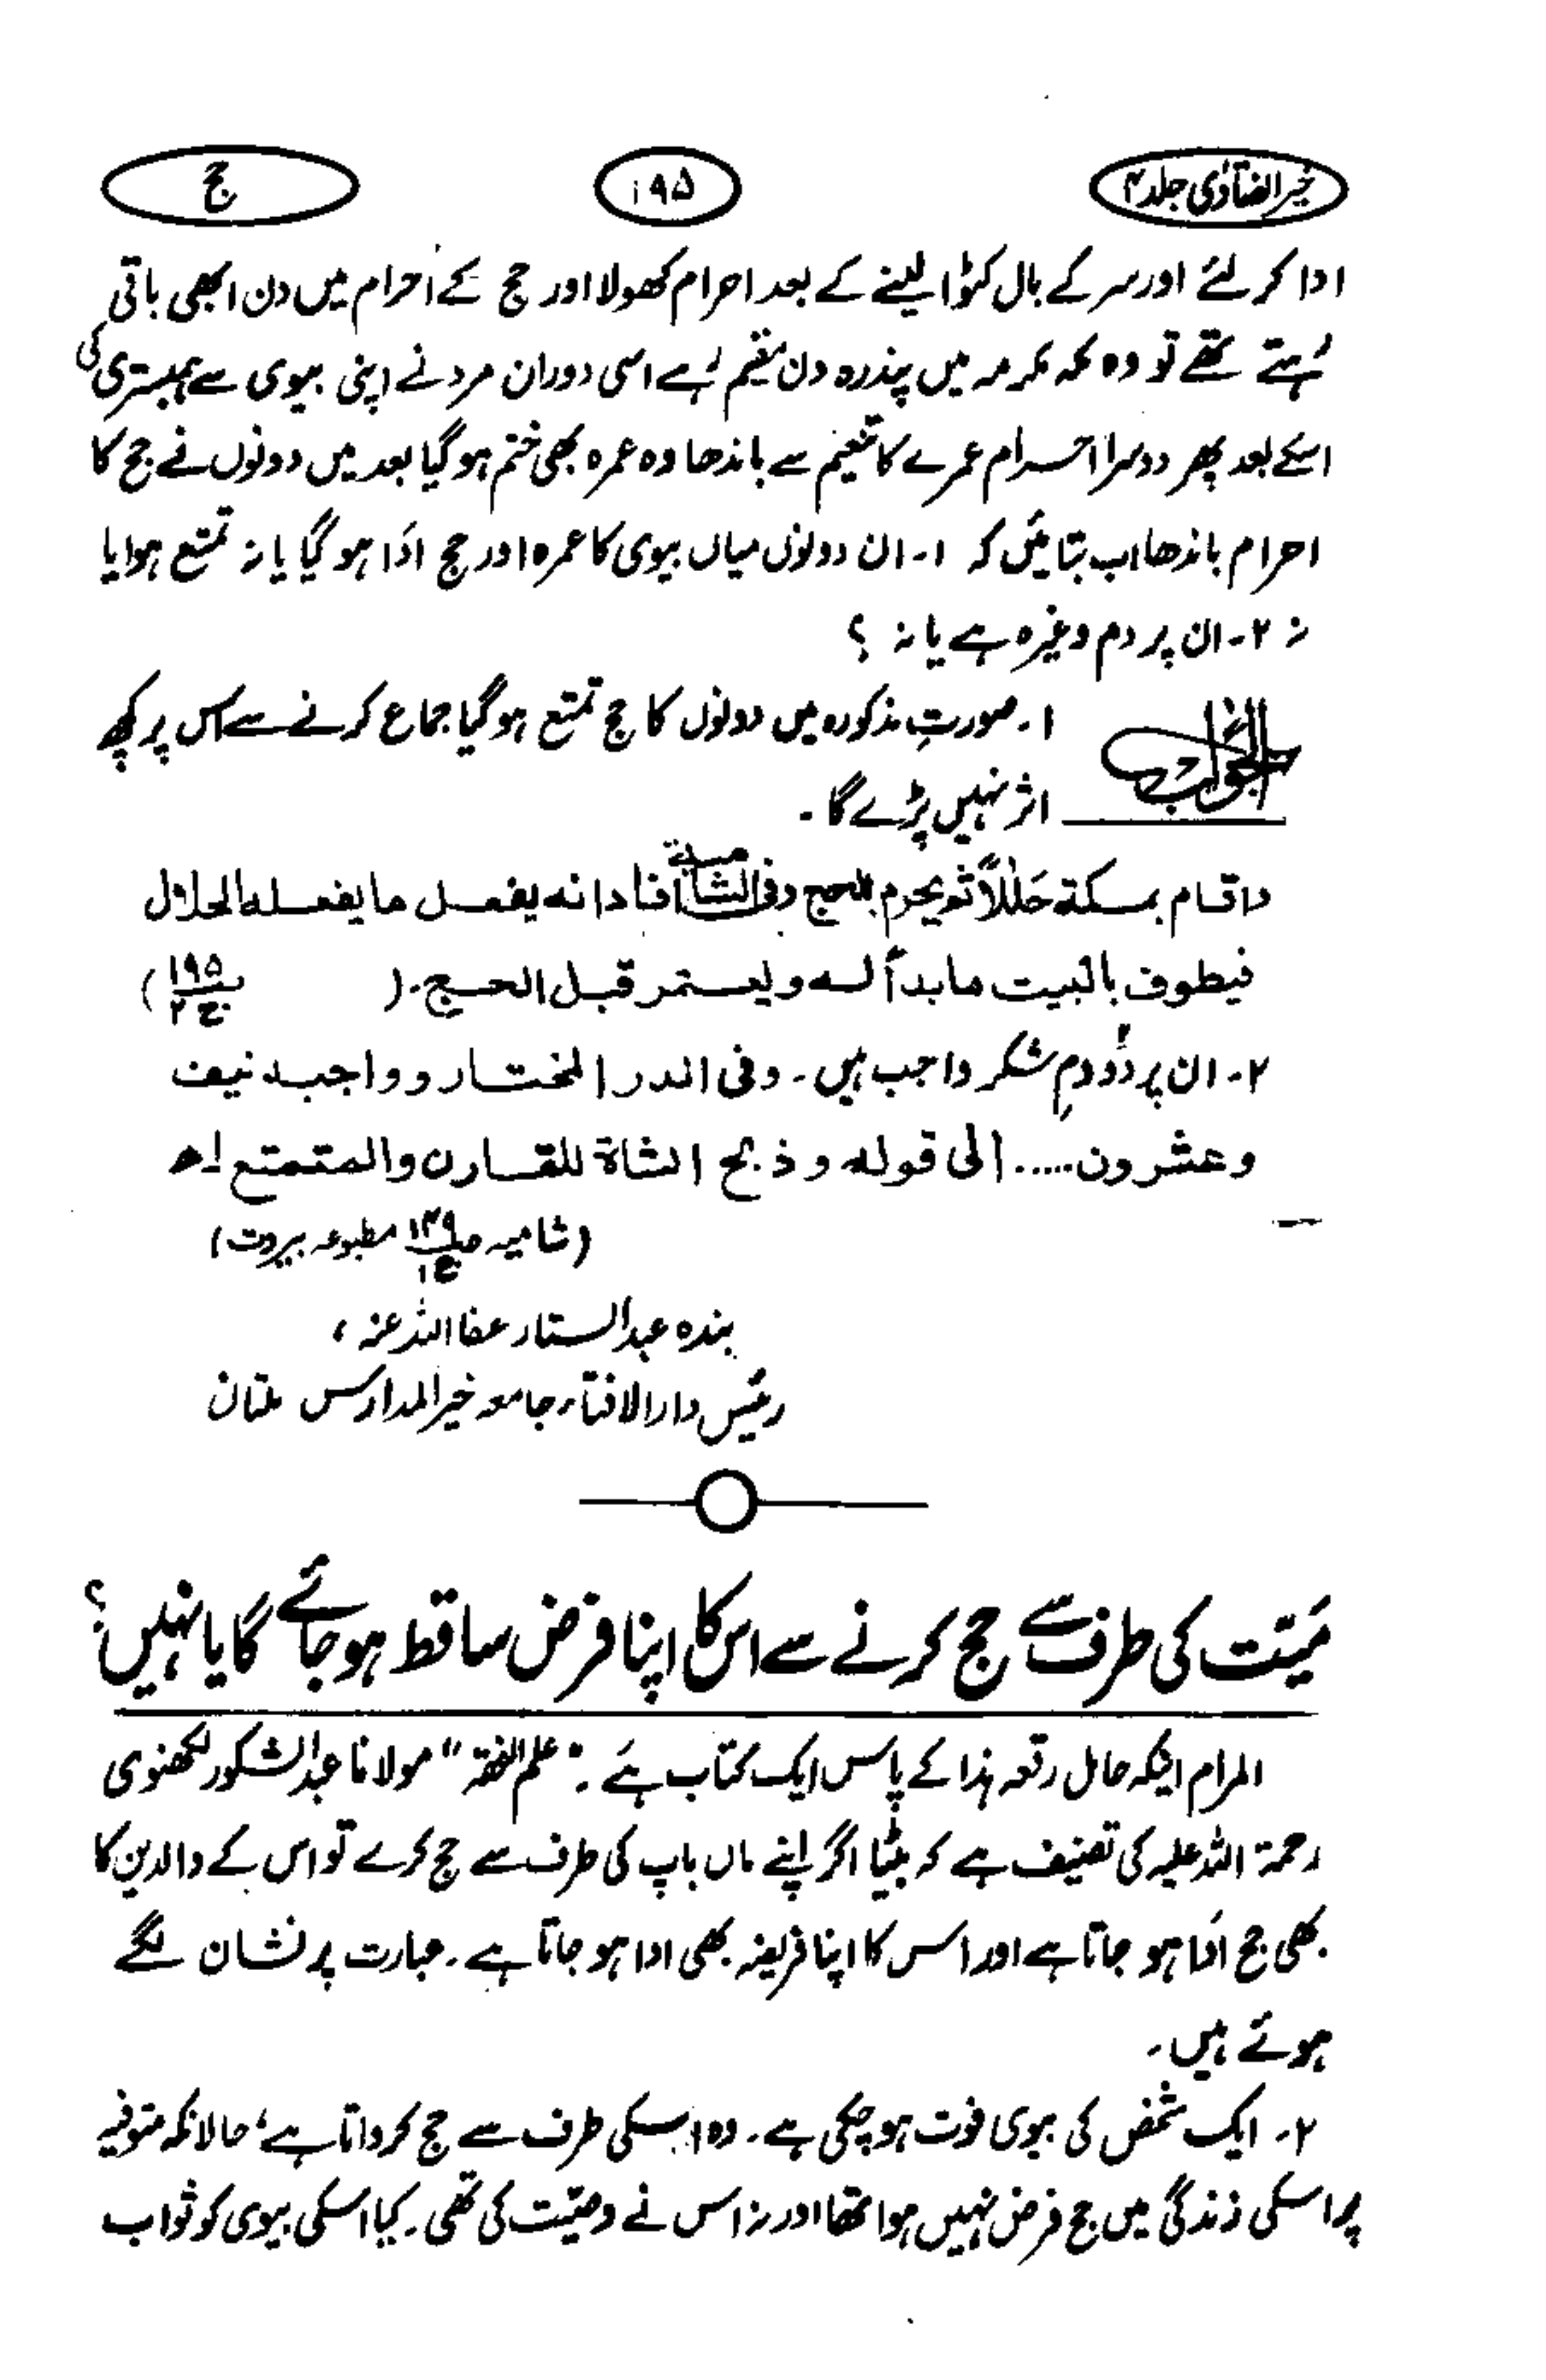 خیر الفتاوٰی جلد ۴
۱۹۵
حج
ادا کر لئے اور سر کے بال کٹوا لینے کے بعد احرام کھولا اور حج کے احرام میں دن ابھی باقی
رہتے تھے تو وہ مکہ مکرمہ میں پندرہ دن مقیم رہے اسی دوران مرد نے اپنی بیوی سے ہمبستری کی
اسکے بعد پھر دوسرا احرام عمرے کا تنعیم سے باندھا وہ عمرہ بھی ختم ہو گیا بعد میں دونوں نے حج کا
احرام باندھا اب بتائیں کہ ۱۔ ان دونوں میاں بیوی کا عمرہ اور حج ادا ہو گیا یا نہ تمتع ہوا یا
نہ ۲۔ ان پر دم وغیرہ ہے یا نہ ؟
الجواب
۱۔ صورتِ مذکورہ میں دونوں کا حج تمتع ہو گیا جماع کرنے سے اس پر کچھ
اثر نہیں پڑے گا۔
واقام بمکة حلالاً ثم یحرم للحج وفی الشامیة افاد انه یفعل ما یفعله الحلال
فیطوف بالبیت ما بدأ له ویعتمر قبل الحج۔ ( ۱۹۵ ج۲ )
۲۔ ان پر دو دمِ شکر واجب ہیں۔ وفی الدر المختار وواجبه نیف
وعشرون ..... الی قوله وذبح الشاة للقارن والمتمتع اھ
(شامیہ ص۱۴۹ ج۱ مطبوعہ بیروت)
بندہ عبدالستار عفا اللہ عنہ ،
رئیس دار الافتاء جامعہ خیر المدارس ملتان
میّت کی طرف سے حج کرنے سے اس کا اپنا فرض ساقط ہو جائے گا یا نہیں؟
المرام اینکہ حامل رقعہ ہذا کے پاس ایک کتاب ہے۔ "علم الفقہ" مولانا عبدالشکور لکھنوی
رحمۃ اللہ علیہ کی تصنیف ہے کہ بیٹا اگر اپنے ماں باپ کی طرف سے حج کرے تو اس کے والدین کا
بھی حج ادا ہو جاتا ہے اور اس کا اپنا فریضہ بھی ادا ہو جاتا ہے۔ عبارت پر نشان لگے
ہوئے ہیں۔
۲۔ ایک شخص کی بیوی فوت ہو چکی ہے۔ وہ اسکی طرف سے حج کرواتا ہے، حالانکہ متوفیہ
پر اسکی زندگی میں حج فرض نہیں ہوا تھا اور نہ اس نے وصیّت کی تھی۔ کیا اسکی بیوی کو ثواب